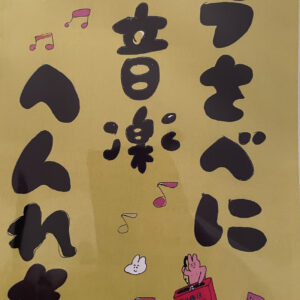 うさべに
音楽
へんれ